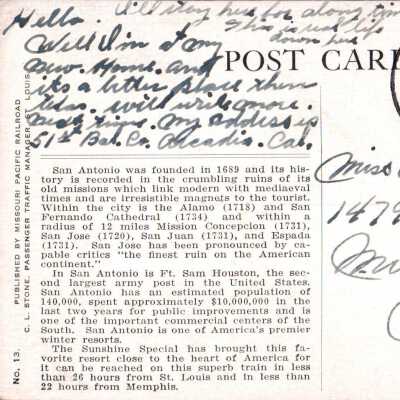 Hello. I'll stay her for along time
This is real life
down her
Well I'm at my
new. Home. and
its a better place then
. will write more.
next time. My address is
61st Bat. Co. Arcadia. Cal.
POST CAR
Miss
1479
San Antonio was founded in 1689 and its his-
tory is recorded in the crumbling ruins of its
old missions which link modern with mediaeval
times and are irresistible magnets to the tourist.
Within the city is the Alamo (1718) and San
Fernando Cathedral (1734) and within a
radius of 12 miles Mission Concepcion (1731),
San Jose (1720), San Juan (1731), and Espada
(1731). San Jose has been pronounced by ca-
pable critics "the finest ruin on the American
continent."
In San Antonio is Ft. Sam Houston, the sec-
ond largest army post in the United States.
San Antonio has an estimated population of
140,000, spent approximately $10,000,000 in the
last two years for public improvements and is
one of the important commercial centers of the
South. San Antonio is one of America's premier
winter resorts.
The Sunshine Special has brought this fa-
vorite resort close to the heart of America for
it can be reached on this superb train in less
than 26 hours from St. Louis and in less than
22 hours from Memphis.
No. 13. PUBLISHED BY MISSOURI PACIFIC RAILROAD
C. L. STONE, PASSENGER TRAFFIC MANAGER, ST. LOUIS